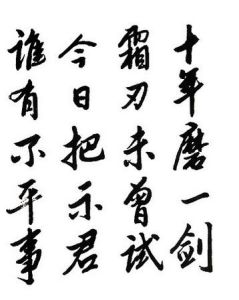 十年磨一剑
霜刃未曾试
今日把示君
谁有不平事